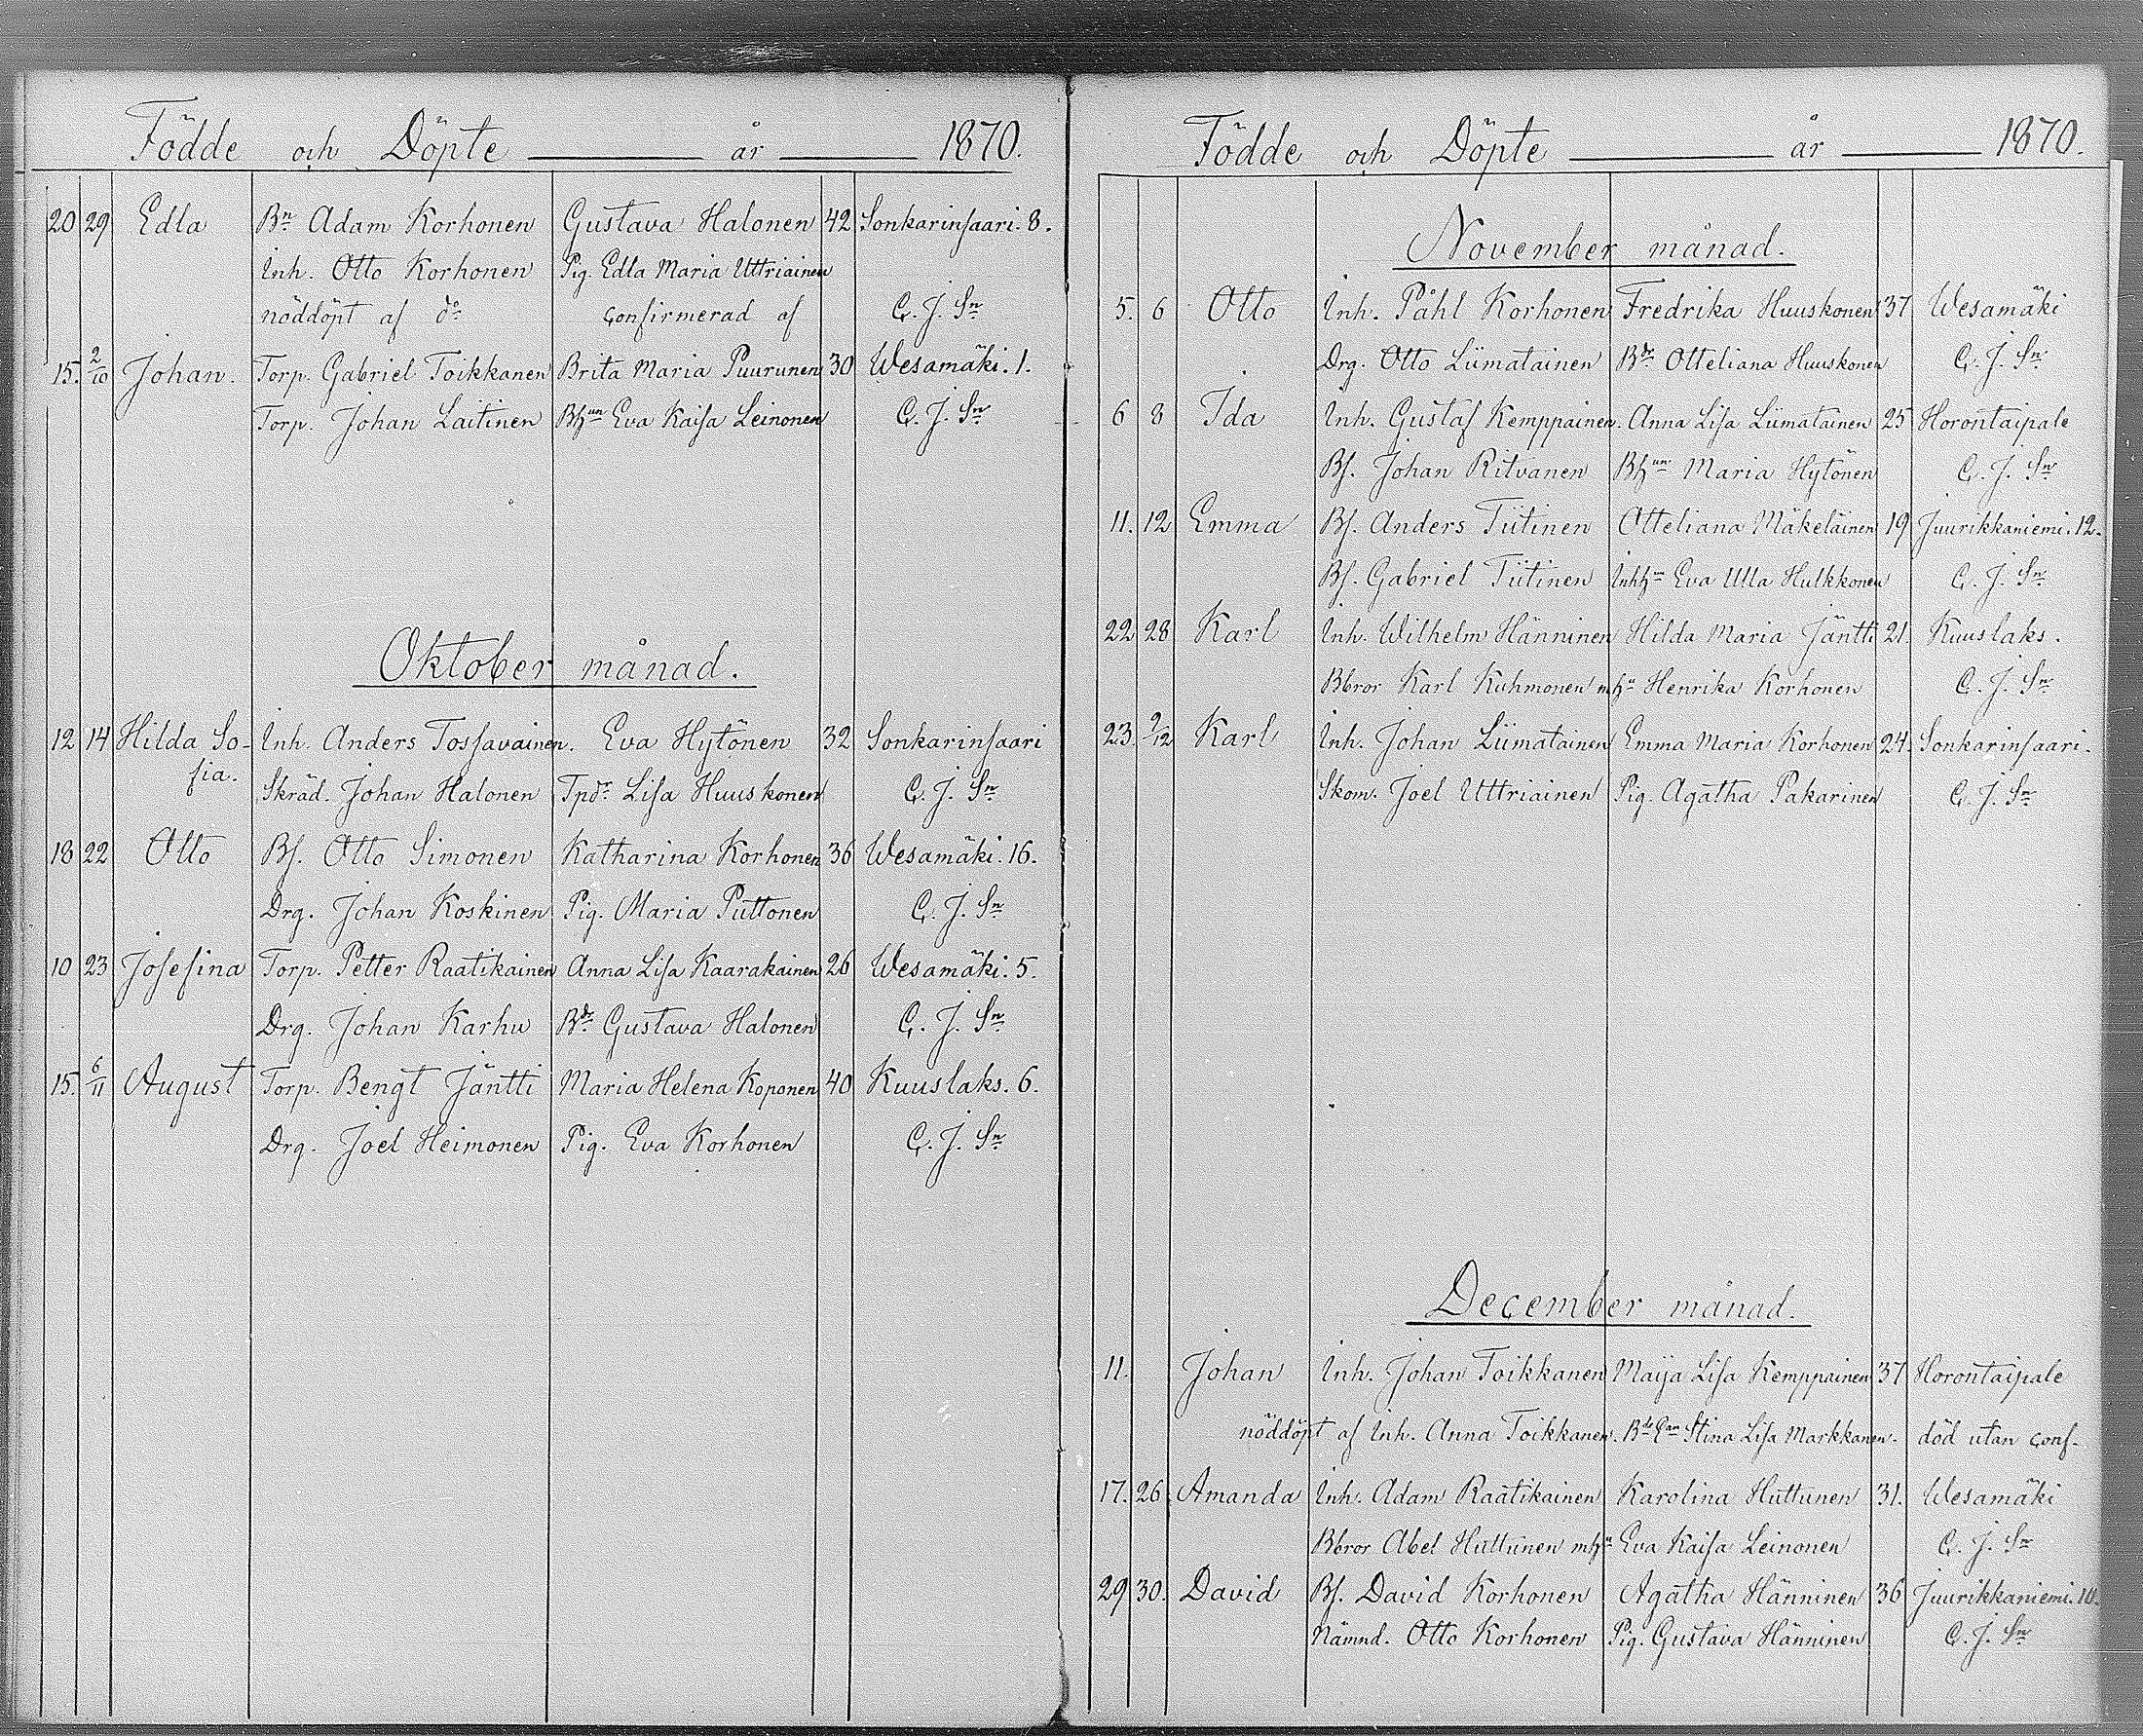 Födde och Döpte år 1870.
20 29 Edla Bn Adam Korhonen Gustava Halonen 42 Sonkarinsaari. 8.
Inh. Otto Korhonen Pig. Edla Maria Uttriainen
nöddöpt af do confirmerad af C. J. Sn
15. 2/10 Johan. Torp. Gabriel Toikkanen Brita Maria Puurunen 30 Wesamäki. 1.
Torp. Johan Laitinen Bhun Eva Kaisa Leinonen C. J. Sn
Oktober månad.
12 14 Hilda So- Inh. Anders Tossavainen. Eva Hytönen 32 Sonkarinsaari
fia. Skräd. Johan Halonen Tpdr Lisa Huuskonen C. J. Sn
18 22 Otto Bf. Otto Simonen Katharina Korhonen 36 Wesamäki. 16.
Drg. Johan Koskinen Pig. Maria Puttonen C. J. Sn
10 23 Josefina Torp. Petter Raatikainen Anna Lisa Kaarakainen 26 Wesamäki. 5.
Drg. Johan Karhu Bdr Gustava Halonen C. J. Sn
15. 6/11 August Torp. Bengt Jäntti Maria Helena Koponen 40 Kuuslaks. 6.
Drg. Joel Heimonen Pig. Eva Korhonen C. J. Sn
Födde och Döpte år 1870.
November månad.
5. 6 Otto Inh. Påhl Korhonen Fredrika Huuskonen 37 Wesamäki
Drg. Otto Liimatainen Bdr Otteliana Huuskonen C. J. Sn
6 8 Ida Inh. Gustaf Kemppainen. Anna Lisa Liimatainen 25 Horontaipale
Bf. Johan Ritvanen Bhun Maria Hytönen C. J. Sn
11. 12 Emma Bf. Anders Tiitinen Otteliana Mäkeläinen 19 Juurikkaniemi. 12.
Bf. Gabriel Tiitinen Inhhu Eva Ulla Hulkkonen C. J. Sn
22 28 Karl Inh. Wilhelm Hänninen Hilda Maria Jäntti 21. Kuuslaks.
Bbror Karl Kuhmonen mhu Henrika Korhonen C. J. Sn
23. 9/12 Karl Inh. Johan Liimatainen Emma Maria Korhonen 24. Sonkarinsaari.
Skom. Joel Uttriainen Pig. Agatha Pakarinen C. J. Sn
December månad.
11. Johan Inh. Johan Toikkanen Maija Lisa Kemppainen 37 Horontaipale
nöddöpt af Inh. Anna Toikkanen. Stina Lisa Markkanen. död utan conf.
17. 26 Amanda Inh. Adam Raatikainen Karolina Huttunen 31. Wesamäki
Bbror Abel Huttunen mhu Eva Kaisa Leinonen C. J. Sn
29 30. David Bf. David Korhonen Agatha Hänninen 36 Juurikkaniemi. 10.
Nämnd. Otto Korhonen Pig. Gustava Hänninen C. J. Sn